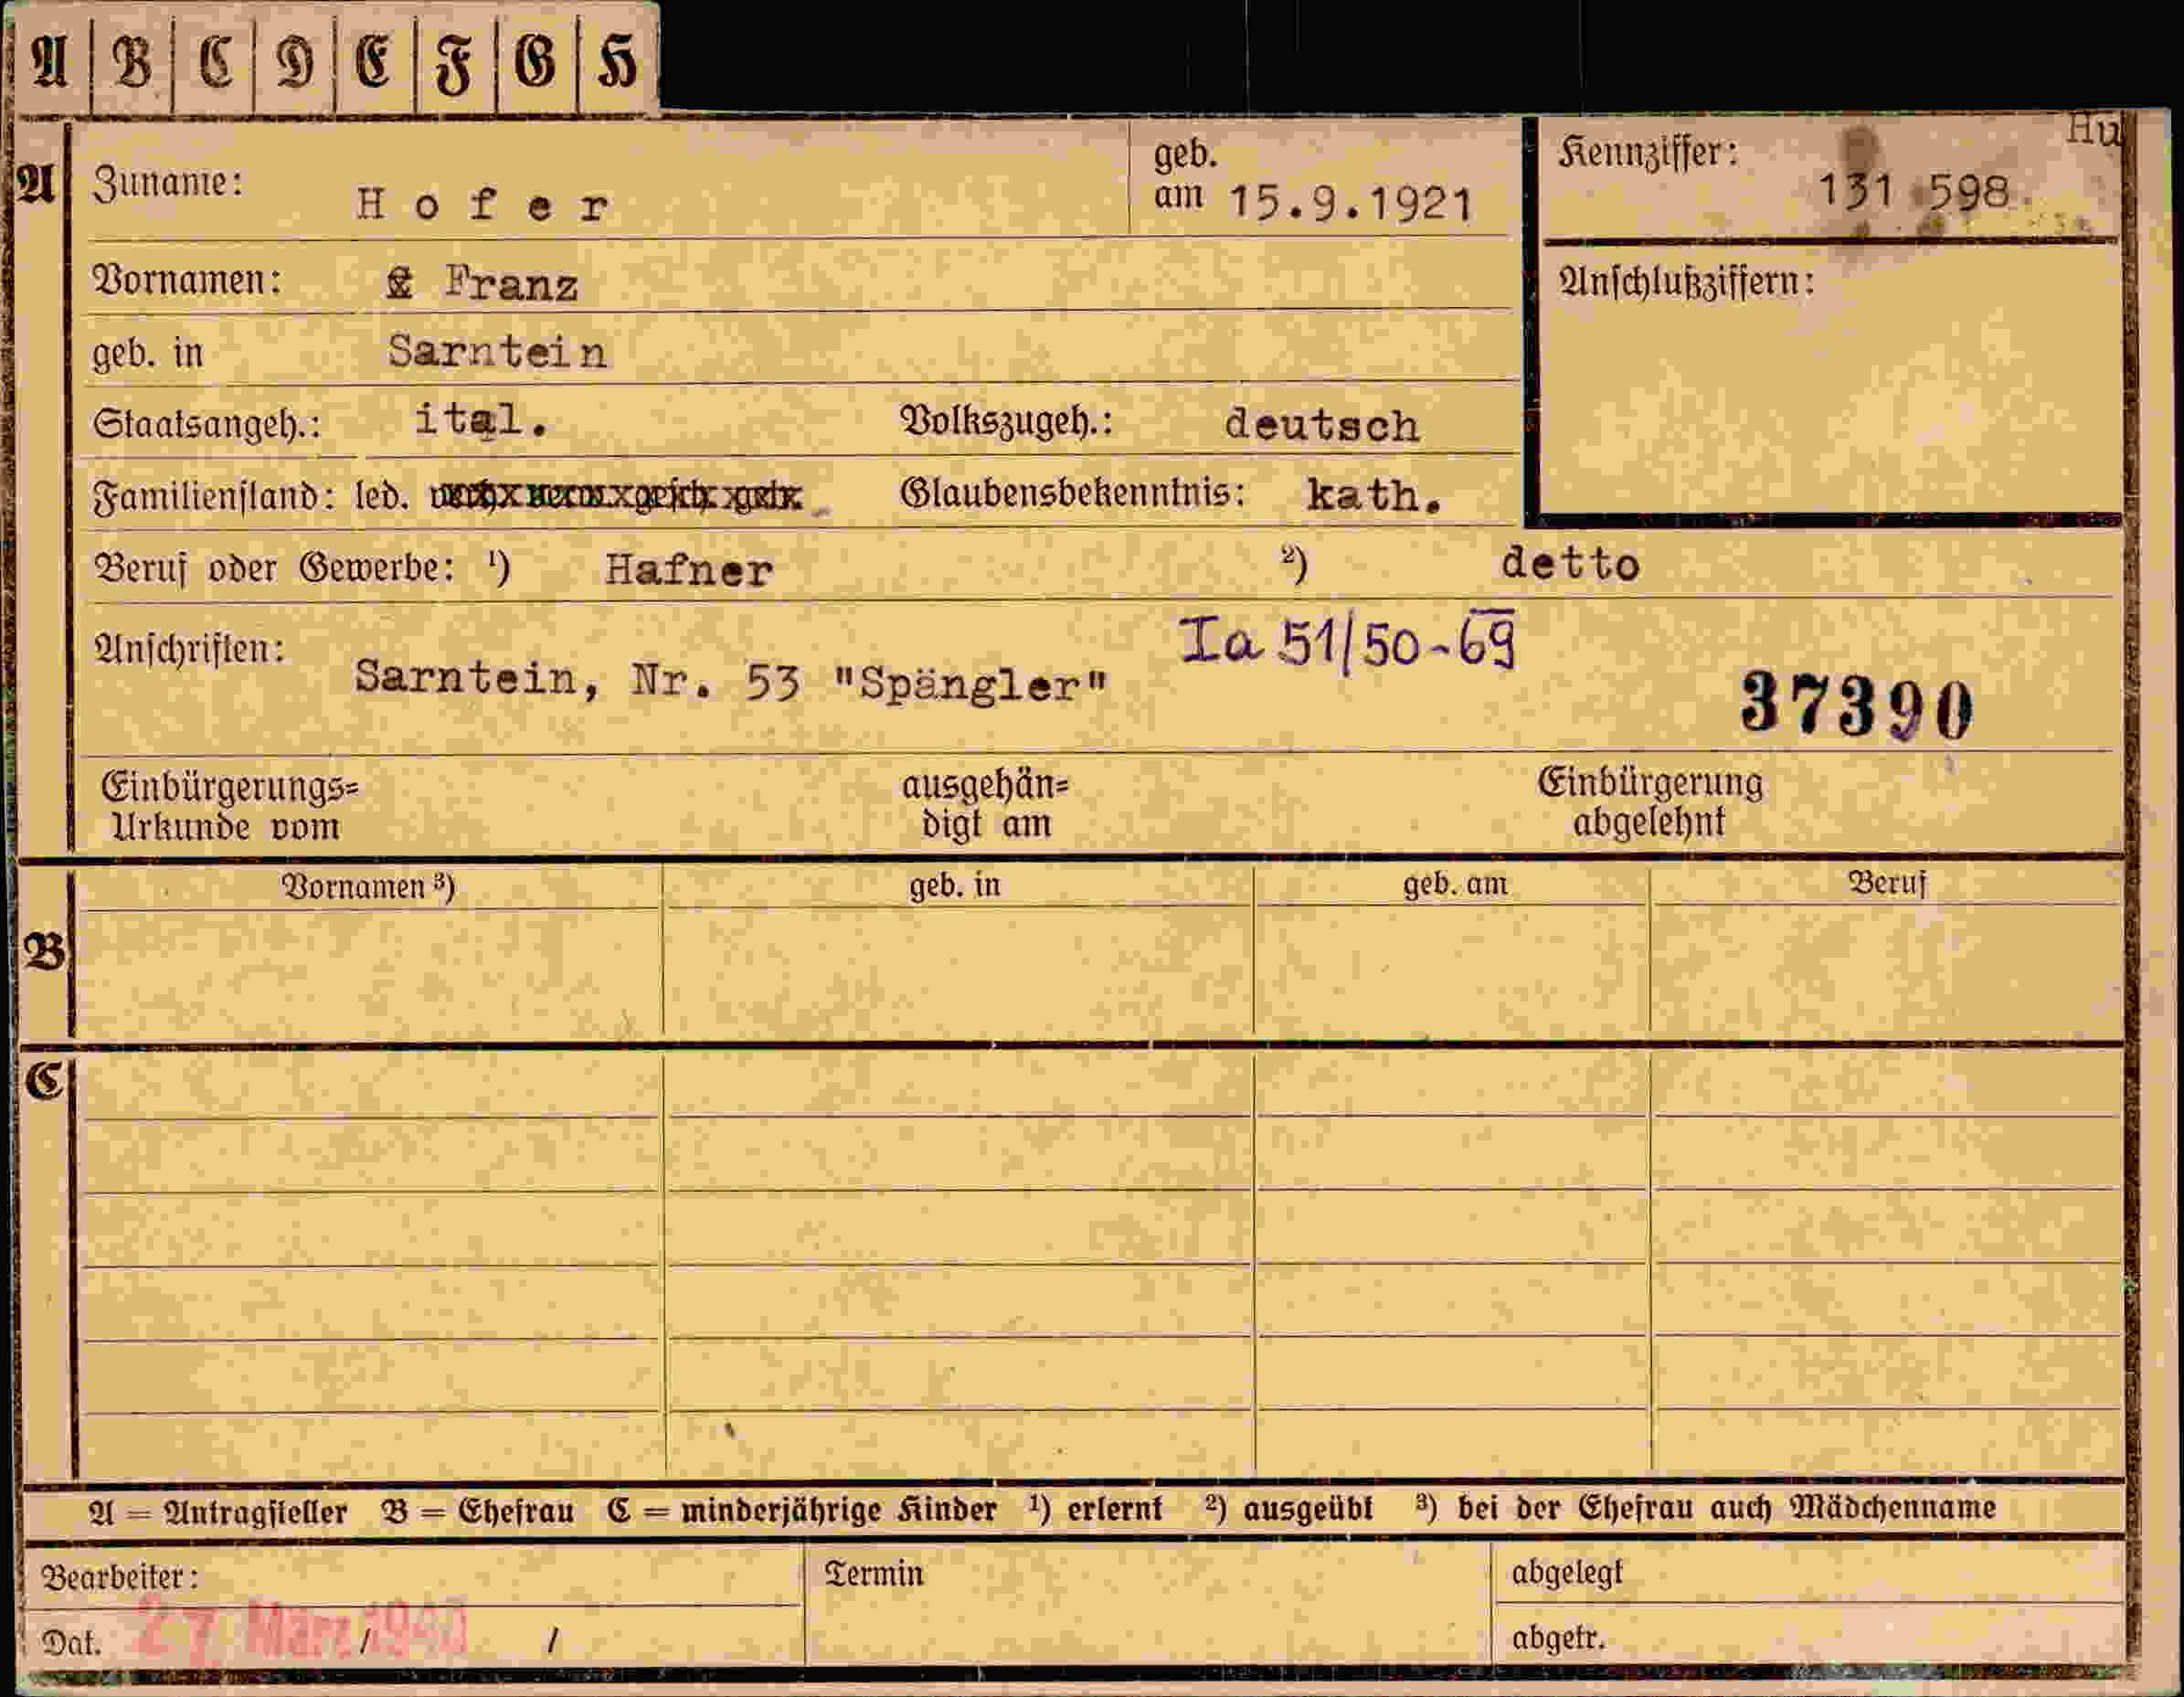 A B C D E F G H
Hu
A
Zuname: Hofer
geb. am 15.9.1921
Kennziffer: 131 598
Vornamen: Franz
Anschlußziffern:
geb. in Sarntein
Staatsangeh.: ital. Volkszugeh.: deutsch
Familienstand: led. verh. verw. gesch. getr. Glaubensbekenntnis: kath.
Beruf oder Gewerbe: ¹) Hafner ²) detto
Ia 51/50-69
Anschriften: Sarntein, Nr. 53 "Spängler"
37390
Einbürgerungs= ausgehän= Einbürgerung
Urkunde vom digt am abgelehnt
Vornamen ³) geb. in geb. am Beruf
B
C
A = Antragsteller B = Ehefrau C = minderjährige Kinder ¹) erlernt ²) ausgeübt ³) bei der Ehefrau auch Mädchenname
Bearbeiter: Termin abgelegt
Dat. 27 März / / abgetr.